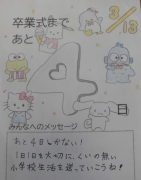 卒業式まで
あと
3/13
4日
みんなへのメッセージ
あと4日しかない!
1日1日を大切に、くいの無い
小学校生活を送っていこうね!